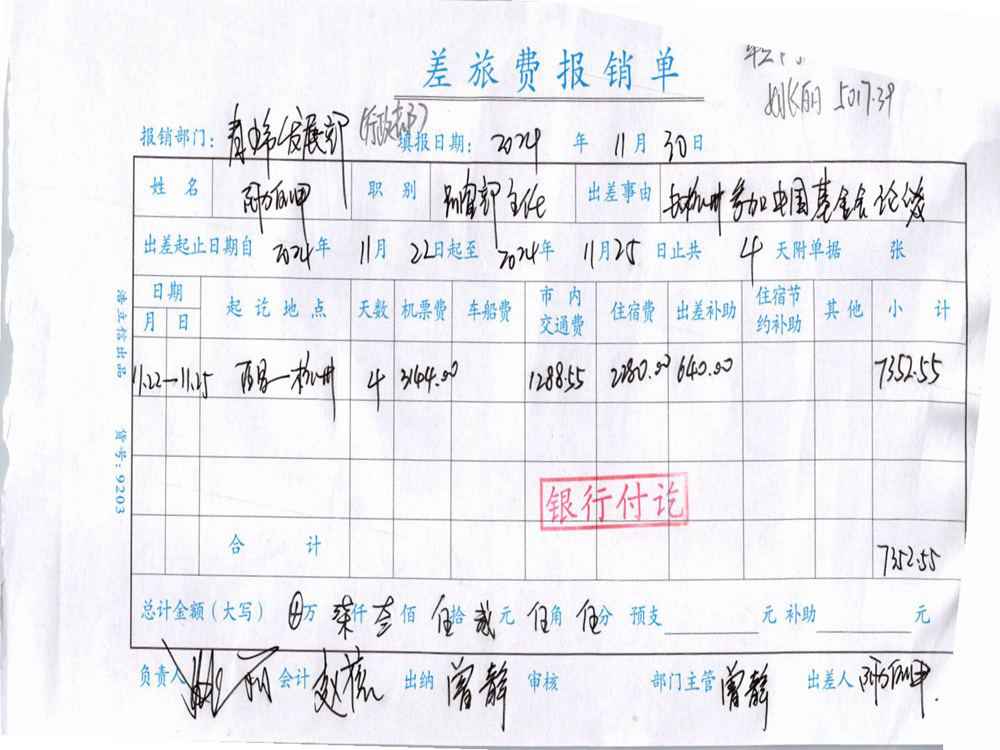 差旅费报销单
姚丽 5017.39
报销部门： 发展部（行政部） 填报日期： 2024 年 11 月 30 日
姓名 职别 主任 出差事由 杭州参加中国基金会论
出差起止日期自 2024 年 11 月 22 日起至 2024 年 11 月 25 日止共 4 天附单据 张
日期 起讫地点 天数 机票费 车船费 市内交通费 住宿费 出差补助 住宿节约补助 其他 小计
月 日
11.22—11.25 西昌—杭州 4 3144.00 1288.55 2280.00 640.00 7352.55
银行付讫
合计 7352.55
总计金额（大写） 万 柒仟 叁佰 伍拾 贰元 伍角 伍分 预支 元 补助 元
负责人 姚丽 会计 赵 出纳 曾静 审核 部门主管 曾静 出差人
浩立信出品 货号：9203